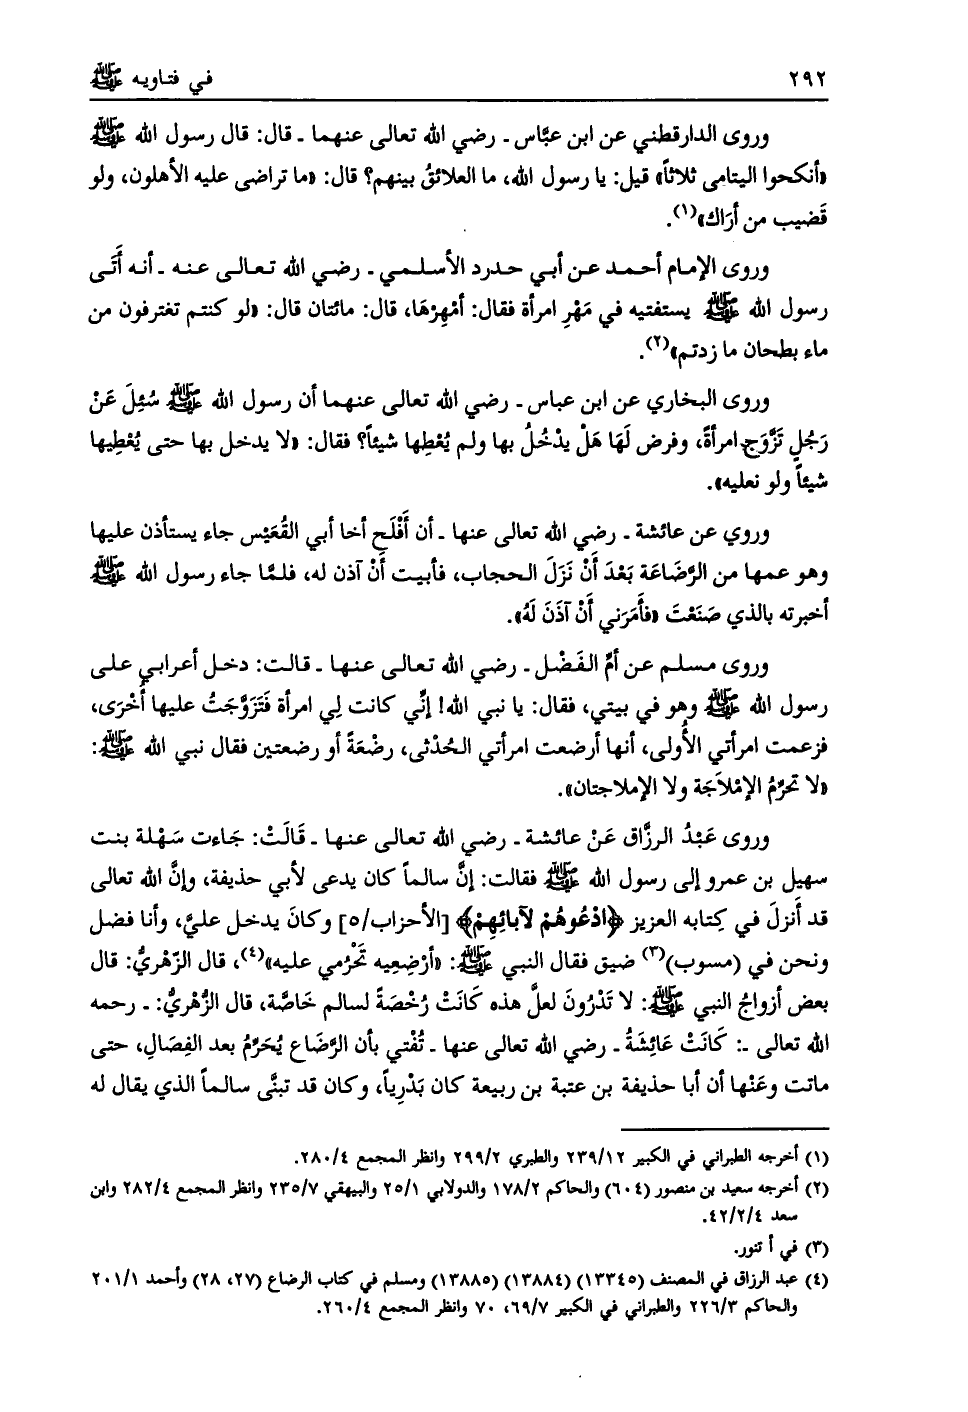 ٢٩٢ في فتاويه ﷺ
وروى الدارقطني عن ابن عبَّاس ـ رضي الله تعالى عنهما ـ قال: قال رسول الله ﷺ
«أنكحوا اليتامى ثلاثاً» قيل: يا رسول الله، ما العلائقُ بينهم؟ قال: «ما تراضى عليه الأهلون، ولو
قَضيب من أرَاك»(١).
وروى الإمام أحمد عن أبي حدرد الأسلمي ـ رضي الله تعالى عنه ـ أنه أَتَى
رسول الله ﷺ يستفتيه في مَهْرِ امرأة فقال: أمْهِرْهَا، قال: مائتان قال: «لو كنتم تغترفون من
ماء بطحان ما زدتم»(٢).
وروى البخاري عن ابن عباس ـ رضي الله تعالى عنهما أن رسول الله ﷺ سُئِلَ عَنْ
رَجُلٍ تَزَّوَج امرأةً، وفرض لَهَا هَلْ يدْخُلُ بها ولم يُعْطِها شيئاً؟ فقال: «لا يدخل بها حتى يُعْطِيها
شيئاً ولو نعليه».
وروي عن عائشة ـ رضي الله تعالى عنها ـ أن أَفْلَح أخا أبي القُعَيْس جاء يستأذن عليها
وهو عمها من الرَّضَاعَة بَعْدَ أَنْ نَزَلَ الحجاب، فأبيت أَنْ آذن له، فلمَّا جاء رسول الله ﷺ
أخبرته بالذي صَنَعْتَ «فأَمَرَني أَنْ آذَنَ لَهُ».
وروى مسلم عن أمِّ الفَضْل ـ رضي الله تعالى عنها ـ قالت: دخل أعرابي على
رسول الله ﷺ وهو في بيتي، فقال: يا نبي الله! إنِّي كانت لِي امرأة فَتَزَوَّجَتُ عليها أُخْرَى،
فزعمت امرأتي الأُولى، أنها أرضعت امرأتي الحُدْثى، رضْعَةً أو رضعتين فقال نبي الله ﷺ:
«لا تحرِّمُ الإمْلاَجَة ولا الإملاجتان».
وروى عَبْدُ الرزَّاق عَنْ عائشة ـ رضي الله تعالى عنها ـ قَالَتْ: جَاءت سَهْلة بنت
سهيل بن عمرو إلى رسول الله ﷺ فقالت: إنَّ سالماً كان يدعى لأبي حذيفة، وإنَّ الله تعالى
قد أَنزلَ في كِتابه العزيز ﴿ادْعُوهُمْ لآبائِهِمْ﴾ [الأحزاب/٥] وكانَ يدخل عليَّ، وأنا فضل
ونحن في (مسوب)(٣) ضيق فقال النبي ﷺ: «أرْضِعِيه تَحْرُمي عليه»(٤)، قال الزّهْريُّ: قال
بعض أزواجُ النبي ﷺ: لا تَدْرُونَ لعلَّ هذه كَانَتْ رُخْصَةً لسالم خَاصَّة، قال الزُّهْريُّ: ـ رحمه
الله تعالى ـ: كَانَتْ عَائِشَةُ ـ رضي الله تعالى عنها ـ تُفْتي بأن الرَّضَاع يُحَرَّمُ بعد الفِصَالِ، حتى
ماتت وعَنْها أن أبا حذيفة بن عتبة بن ربيعة كان بَدْرِياً، وكان قد تبنَّى سالماً الذي يقال له
(١) أخرجه الطبراني في الكبير ٢٣٩/١٢ والطبري ٢٩٩/٢ وانظر المجمع ٢٨٠/٤.
(٢) أخرجه سعيد بن منصور (٦٠٤) والحاكم ١٧٨/٢ والدولابي ٢٥/١ والبيهقي ٢٣٥/٧ وانظر المجمع ٢٨٢/٤ وابن
سعد ٤٢/٢/٤.
(٣) في أ تنور.
(٤) عبد الرزاق في المصنف (١٣٣٤٥) (١٣٨٨٤) (١٣٨٨٥) ومسلم في كتاب الرضاع (٢٧، ٢٨) وأحمد ٢٠١/١
والحاكم ٢٢٦/٣ والطبراني في الكبير ٦٩/٧، ٧٠ وانظر المجمع ٢٦٠/٤.